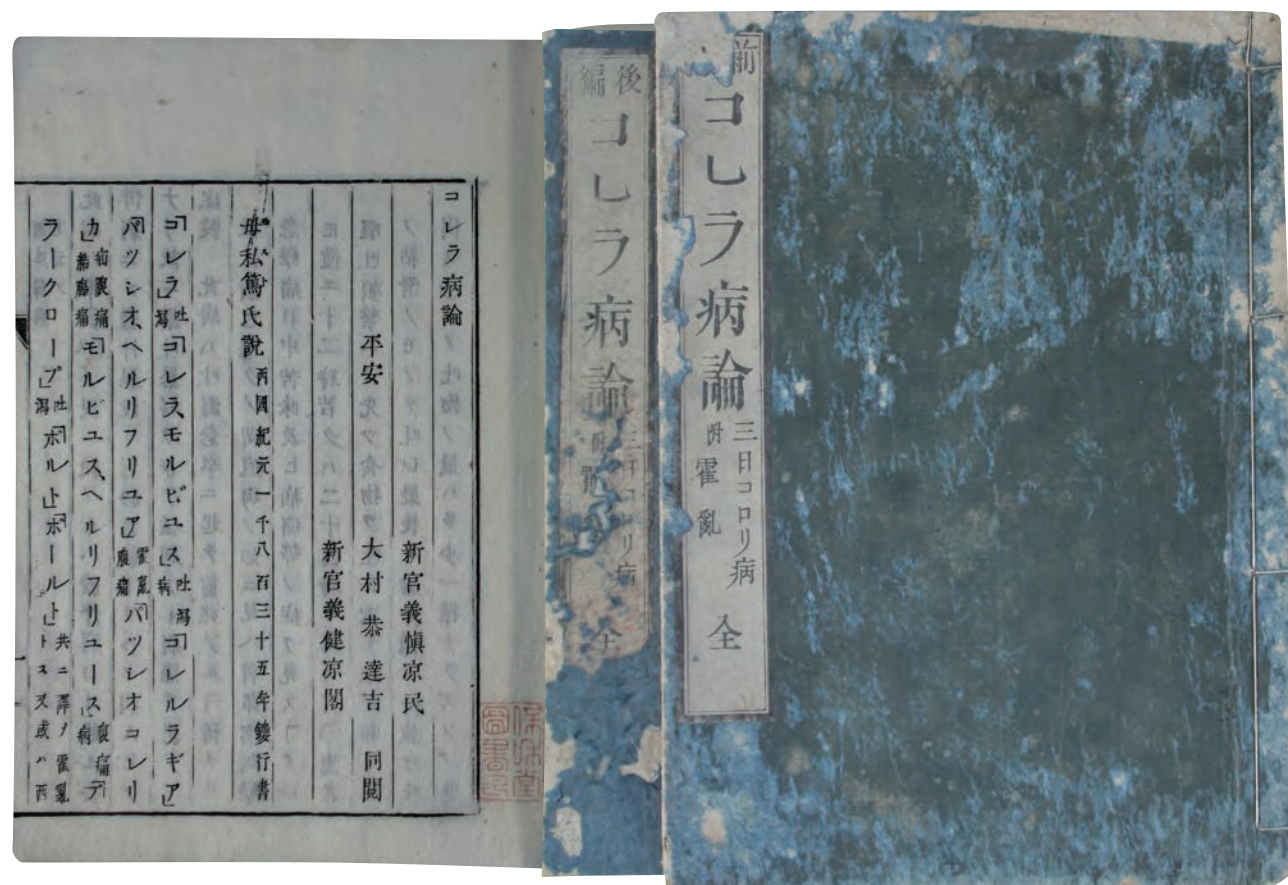 前
コレラ病論
三日コロリ病
附霍亂
全
後編
コレラ病論
三日コロリ病
附霍
全
コレラ病論
新宮義愼凉民
平安 大村恭達吉 同閲
新宮義健凉閣
毋私篤氏說 西國紀元一千八百三十五年鏤行書
「コレラ」吐瀉「コレラ、モルビユス」吐瀉病「コレルラギア」
「パツシオ、ヘルリフリユア」霍亂腹痛「パツシオコレリ
カ」疝腹痛「モルビユス、ヘルリフリユース」腹痛病「デ
ラークロープ」吐瀉「ボルト」「ボールト」共ニ譯ノ霍亂トス又或ハ西